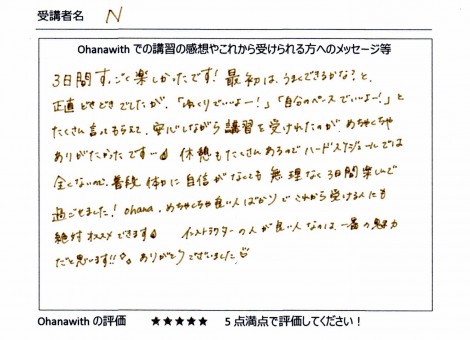 受講者名 N
Ohanawith での講習の感想やこれから受けられる方へのメッセージ等
3日間すっごく楽しかったです! 最初は、うまくできるかな?と、
正直どきどきでしたが、「ゆっくりでいいよー!」「自分のペースでいいよー!」と
たくさん言ってもらえて、安心しながら講習を受けれたのが、めちゃくちゃ
ありがたかったです 休憩もたくさんあるのでハードスケジュールでは
全くないので、普段 体力に自信がなくても 無理なく3日間楽しんで
過ごせました! ohana、めちゃくちゃ良い人ばかりで これから受ける人にも
絶対オススメできます インストラクターの人が良い人なのは一番の魅力
だと思います!! ありがとうございました
Ohanawith の評価 ★★★★★ 5 点満点で評価してください!